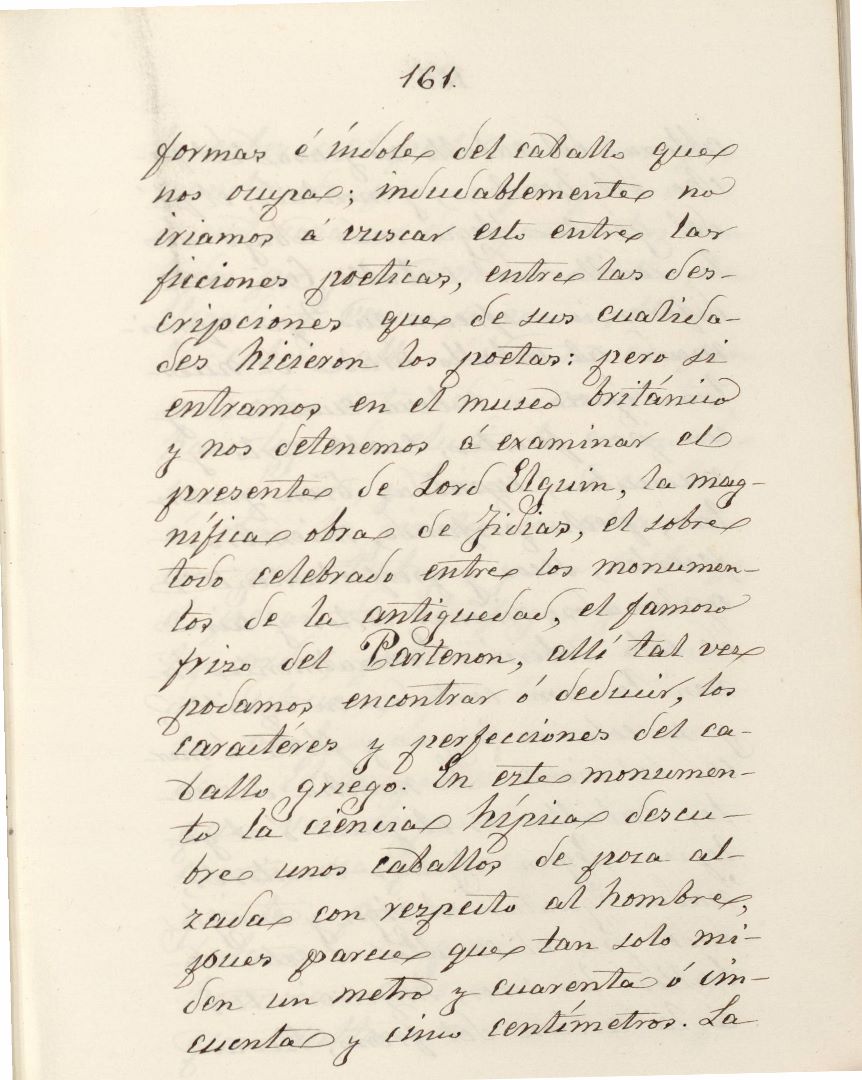 161.
formas é índole del caballo que
nos ocupa; indudablemente no
iriamos á vuscar esto entre las
ficciones poeticas, entre las des-
cripciones que de sus cualida-
des hicieron los poetas: pero si
entramos en el museo británico
y nos detenemos á examinar el
presente de Lord Elguin, la mag-
nífica obra de Fidias, el sobre
todo celebrado entre los monumen-
tos de la antiguedad, el famoso
friso del Partenon, allí tal vez
podamos encontrar ó deducir, los
caractéres y perfecciones del ca-
ballo griego. En este monumen-
to la ciencia hípica descu-
bre unos caballos de poca al-
zada con respecto al hombre,
pues parece que tan solo mi-
den un metro y cuarenta ó cin-
cuenta y cinco centímetros. La